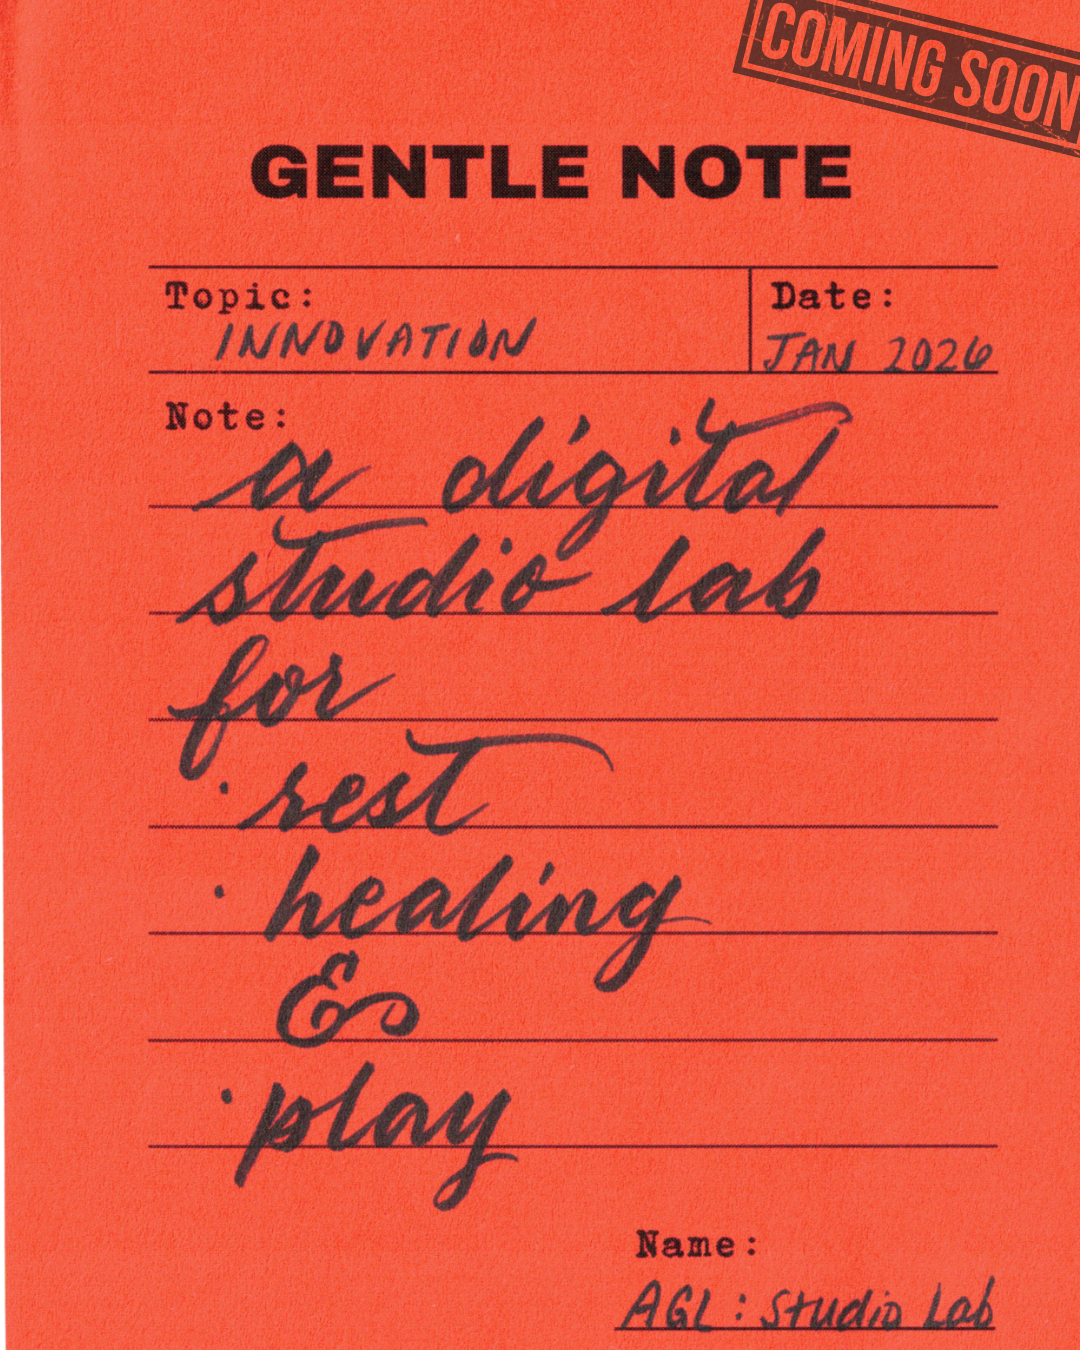 COMING SOON
GENTLE NOTE
Topic:
INNOVATION
Date:
JAN 2026
Note:
a digital
studio lab
for
· rest
· healing
&
· play
Name:
AGL: Studio Lab